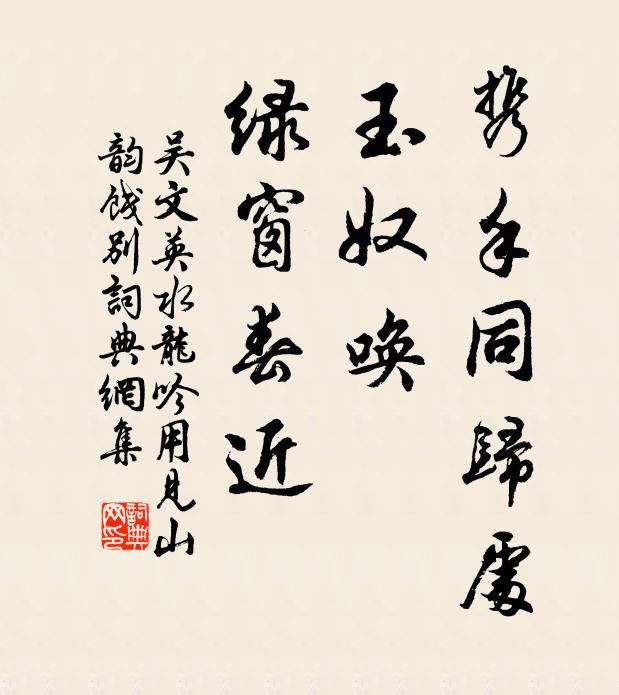 携手同歸處
玉奴喚
绿窗春近
吴文英水龍吟用見山
韵餞别詞典網集
詞典
网印